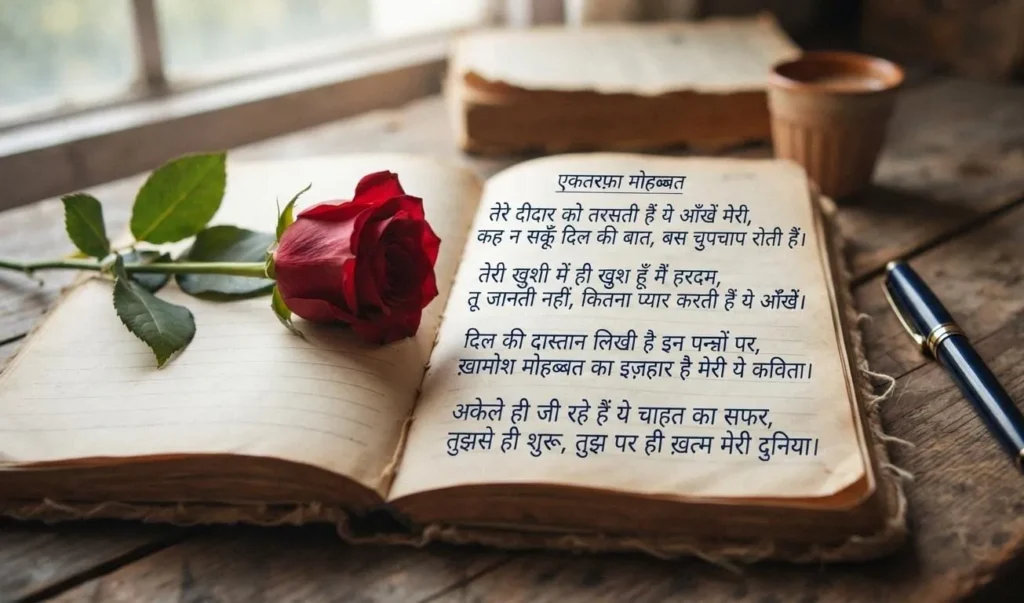 एकतरफ़ा मोहब्बत
तेरे दीदार को तरसती हैं ये आँखें मेरी,
कह न सकूँ दिल की बात, बस चुपचाप रोती हैं।
तेरी खुशी में ही खुश हूँ मैं हरदम,
तू जानती नहीं, कितना प्यार करती हैं ये आँखें।
दिल की दास्तान लिखी है इन पन्नों पर,
ख़ामोश मोहब्बत का इज़हार है मेरी ये कविता।
अकेले ही जी रहे हैं ये चाहत का सफर,
तुझसे ही शुरू, तुझ पर ही ख़त्म मेरी दुनिया।